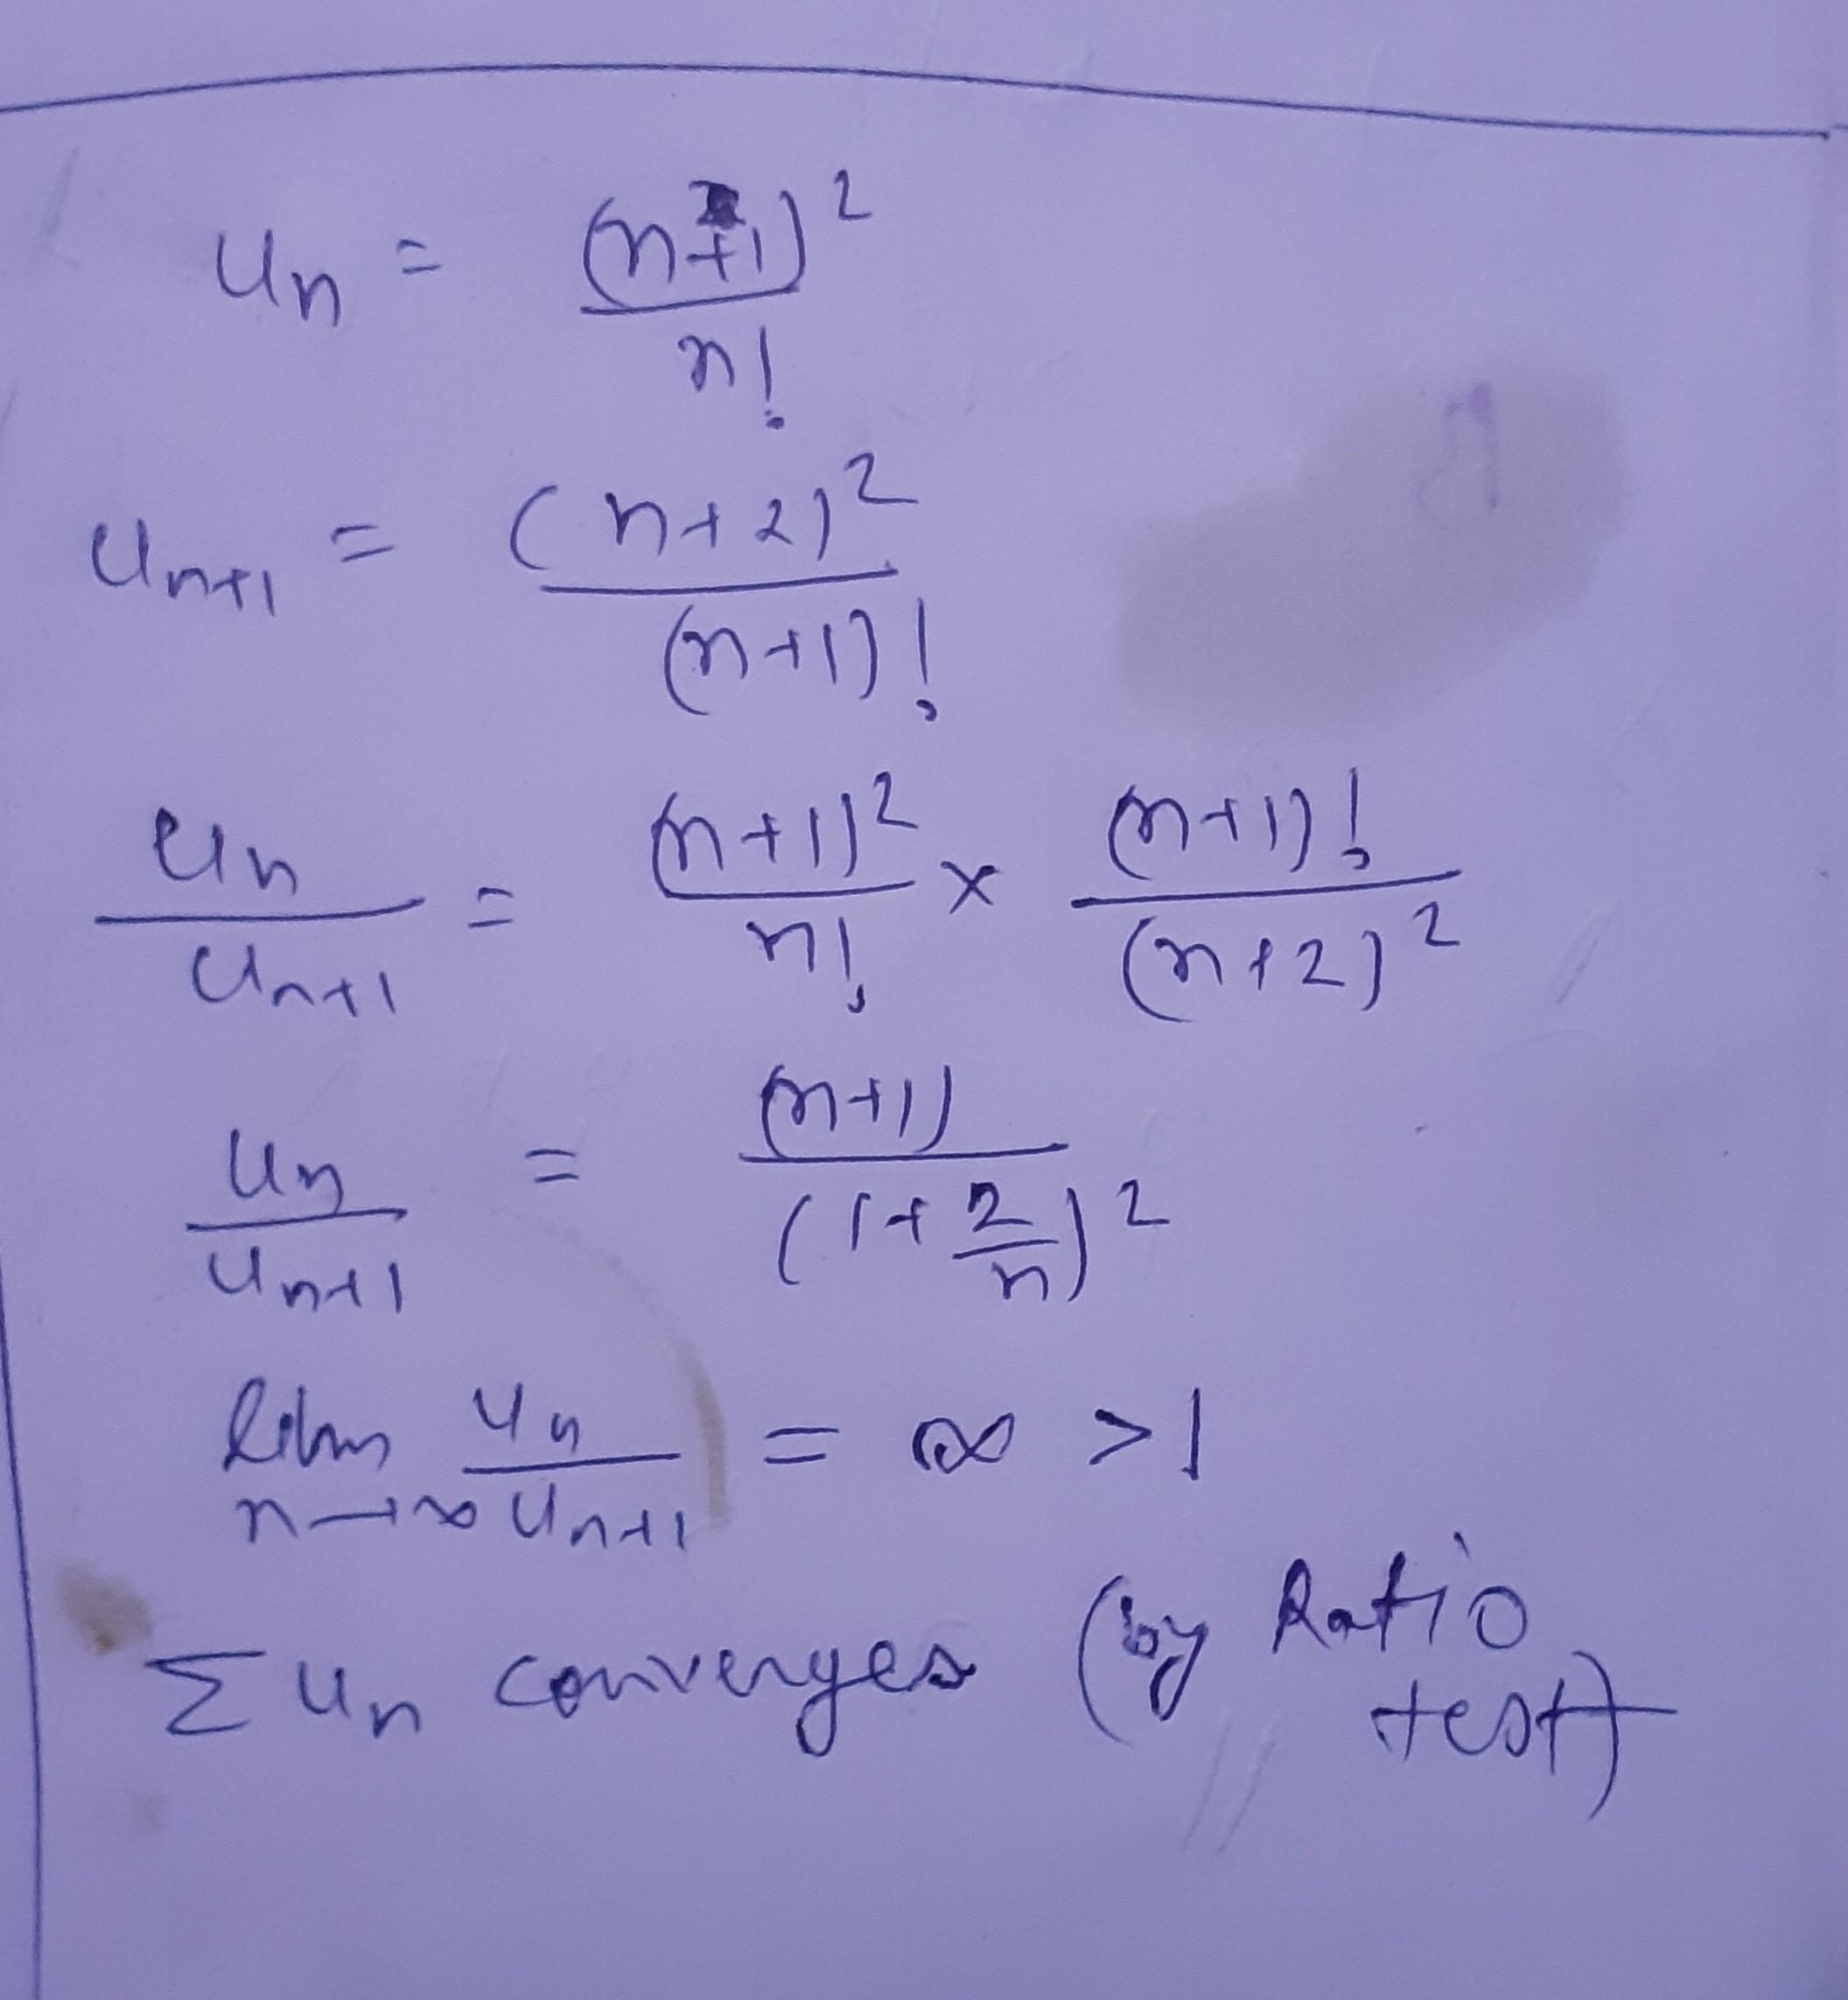 Un = (n+1)²/n!
Un+1 = (n+2)²/(n+1)!
Un/Un+1 = (n+1)²/n! × (n+1)!/(n+2)²
Un/Un+1 = (n+1)/(1+2/n)²
lim n→∞ Un/Un+1 = ∞ >1
Σ Un converges (by Ratio test)